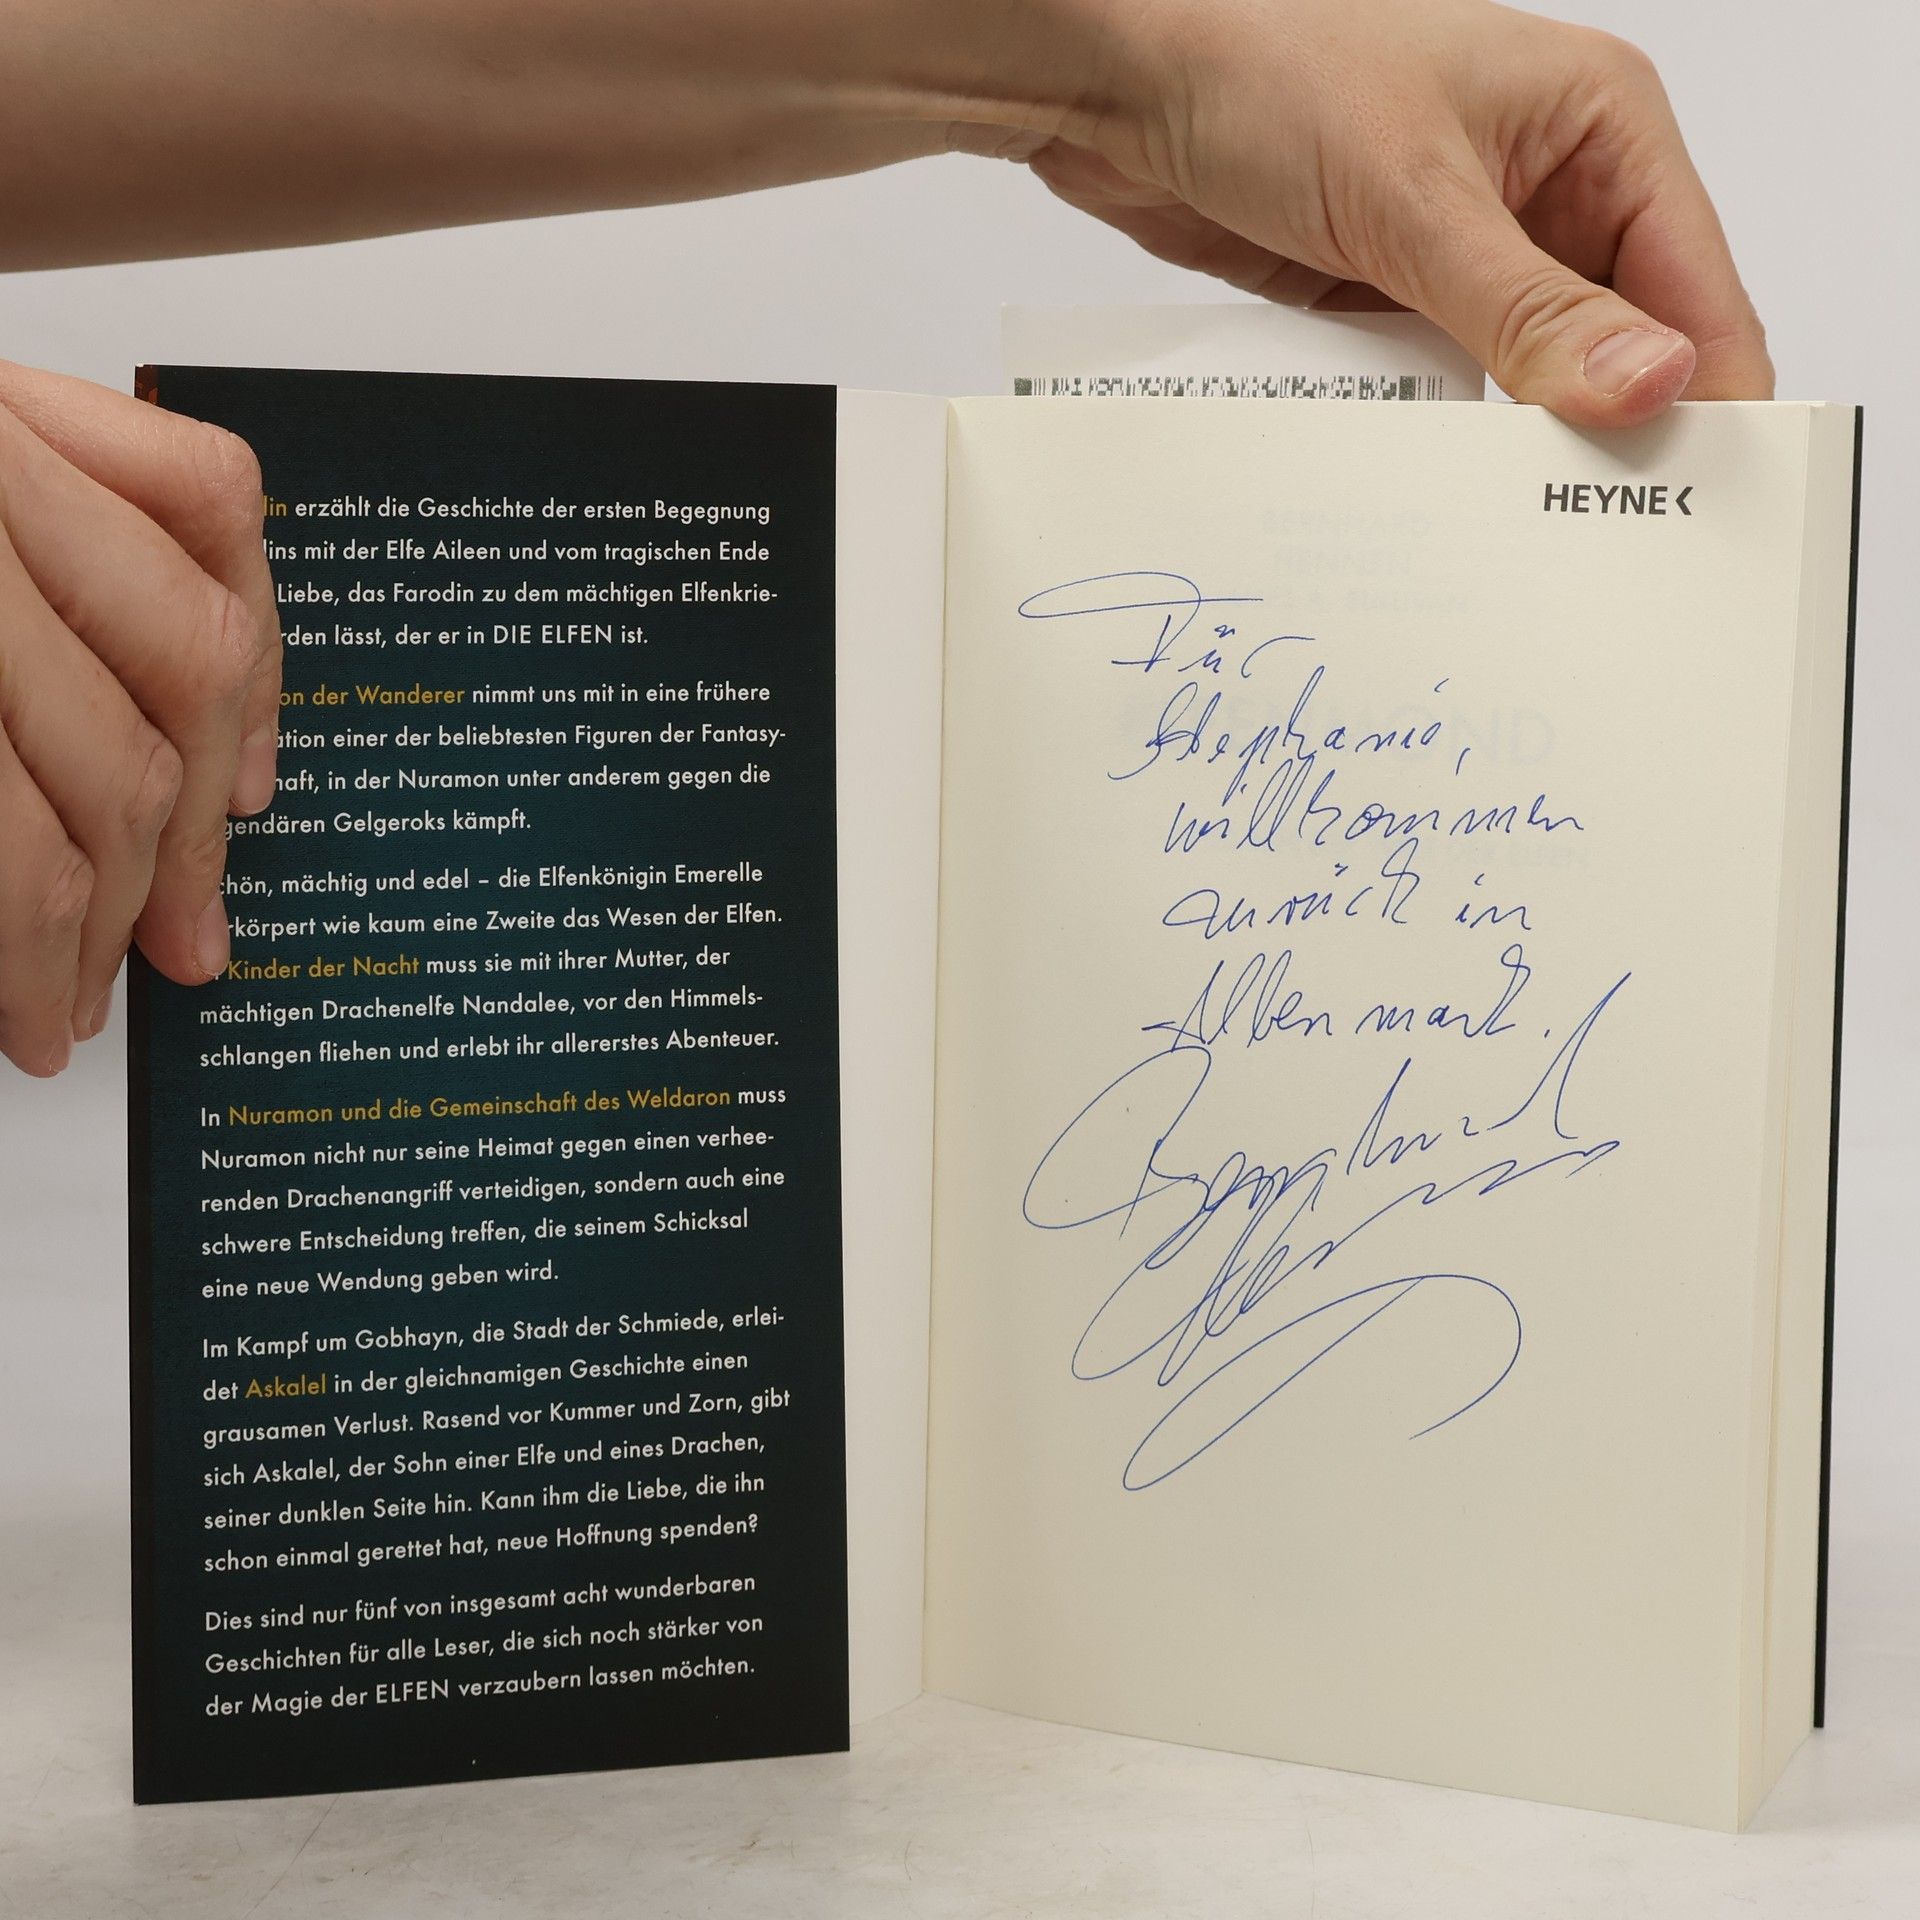 lin erzählt die Geschichte der ersten Begegnung
lins mit der Elfe Aileen und vom tragischen Ende
Liebe, das Farodin zu dem mächtigen Elfenkrie-
rden lässt, der er in DIE ELFEN ist.
on der Wanderer nimmt uns mit in eine frühere
ation einer der beliebtesten Figuren der Fantasy-
haft, in der Nuramon unter anderem gegen die
gendären Gelgeroks kämpft.
chön, mächtig und edel – die Elfenkönigin Emerelle
rkörpert wie kaum eine Zweite das Wesen der Elfen.
Kinder der Nacht muss sie mit ihrer Mutter, der
mächtigen Drachenelfe Nandalee, vor den Himmels-
schlangen fliehen und erlebt ihr allererstes Abenteuer.
In Nuramon und die Gemeinschaft des Weldaron muss
Nuramon nicht nur seine Heimat gegen einen verhee-
renden Drachenangriff verteidigen, sondern auch eine
schwere Entscheidung treffen, die seinem Schicksal
eine neue Wendung geben wird.
Im Kampf um Gobhayn, die Stadt der Schmiede, erlei-
det Askalel in der gleichnamigen Geschichte einen
grausamen Verlust. Rasend vor Kummer und Zorn, gibt
sich Askalel, der Sohn einer Elfe und eines Drachen,
seiner dunklen Seite hin. Kann ihm die Liebe, die ihn
schon einmal gerettet hat, neue Hoffnung spenden?
Dies sind nur fünf von insgesamt acht wunderbaren
Geschichten für alle Leser, die sich noch stärker von
der Magie der ELFEN verzaubern lassen möchten.
HEYNE
Für
Stephanie,
willkommen
zurück in
Albenmark.